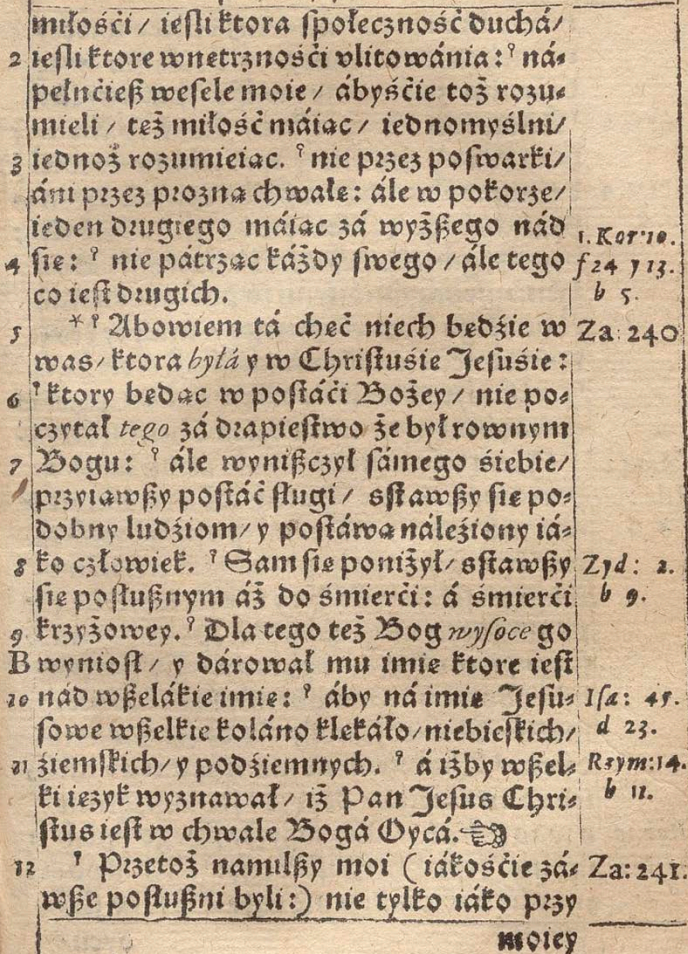 miłośći / iesli ktora społecznosć duchá /
2 iesli ktore wnetrznośći vlitowánia : ꝛ ná⸗
pełnćieß wesele moie / ábyśćie toż rozu⸗
mieli / też miłosć máiac / iednomyślni /
3 iednoż rozumieiac. ꝛ nie przez poswarki /
áni przez prozna chwałe : ále w pokorze /
ieden drugiego máiac zá wyżßego nád
4 sie : ꝛ nie pátrząc káżdy swego / ále tego
co iest drugich.
1. Kor 10.
f 24 y 13.
b 5.
5 * ꝛ Abowiem tá cheć niech bedźie w
was / ktora byłá y w Christuśie Jesuśie :
Za: 240
6 ꝛ ktory bedac w postáći Bożey / nie po⸗
czytał tego zá drapiestwo że był rownym
7 Bogu : ꝛ ále wynißczył sámego śiebie /
przyiawßy postáć sługi / sstawßy sie po⸗
dobny ludźiom / y postáwa náleźiony iá⸗
8 ko człowiek. ꝛ Sam sie poniżył / sstawßy
sie posłußnym áż do śmierći : á śmierći
Zyd: 2.
b 9.
9 krzyżowey. ꝛ Dla tego też Bog wysoce go
B wyniosł / y dárował mu imie ktore iest
10 nád wßelákie imie : ꝛ áby ná imie Jesu⸗
sowe wßelkie koláno klekáło / niebieskich /
Isa: 45.
d 23.
11 źiemskich / y podźiemnych. ꝛ á iżby wßel⸗
ki iezyk wyznawał / iż Pan Jesus Chri⸗
stus iest w chwale Bogá Oycá.
Rzym: 14.
b 11.
12 ꝛ Przetoż namilßy moi ( iákośćie zá⸗
wße posłußni byli :) nie tylko iáko przy
Za: 241.
moiey